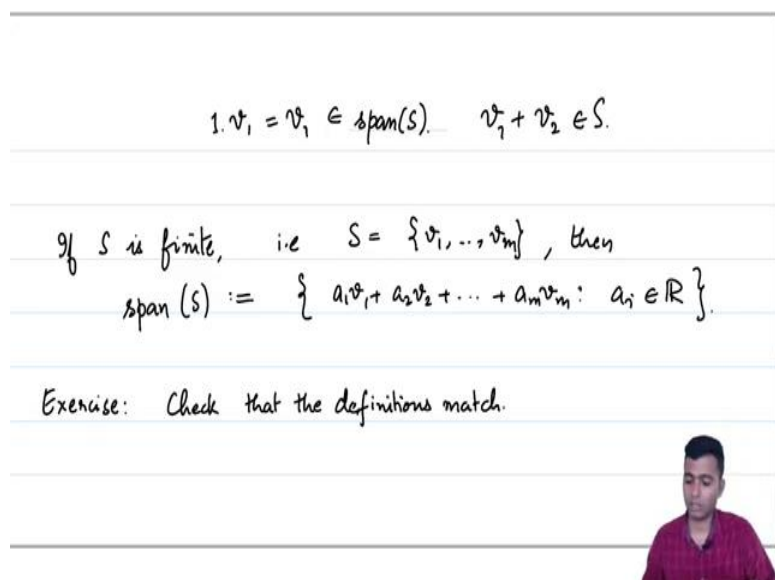 1. v₁ = v₁ ∈ span(S). v₁ + v₂ ∈ S.
If S is finite, i.e S = {v₁, .., vₘ}, then
span (S) := { a₁v₁ + a₂v₂ + ... + aₘvₘ : aᵢ ∈ ℝ }.
Exercise: Check that the definitions match.